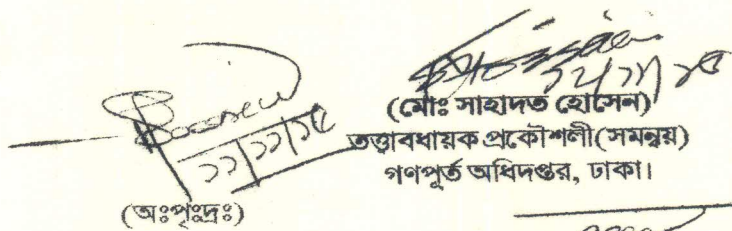 ১১/১১/১৫
(মোঃ সাহাদত হোসেন)
তত্ত্বাবধায়ক প্রকৌশলী(সমন্বয়)
গণপূর্ত অধিদপ্তর, ঢাকা।
(অঃপৃঃদ্রঃ)